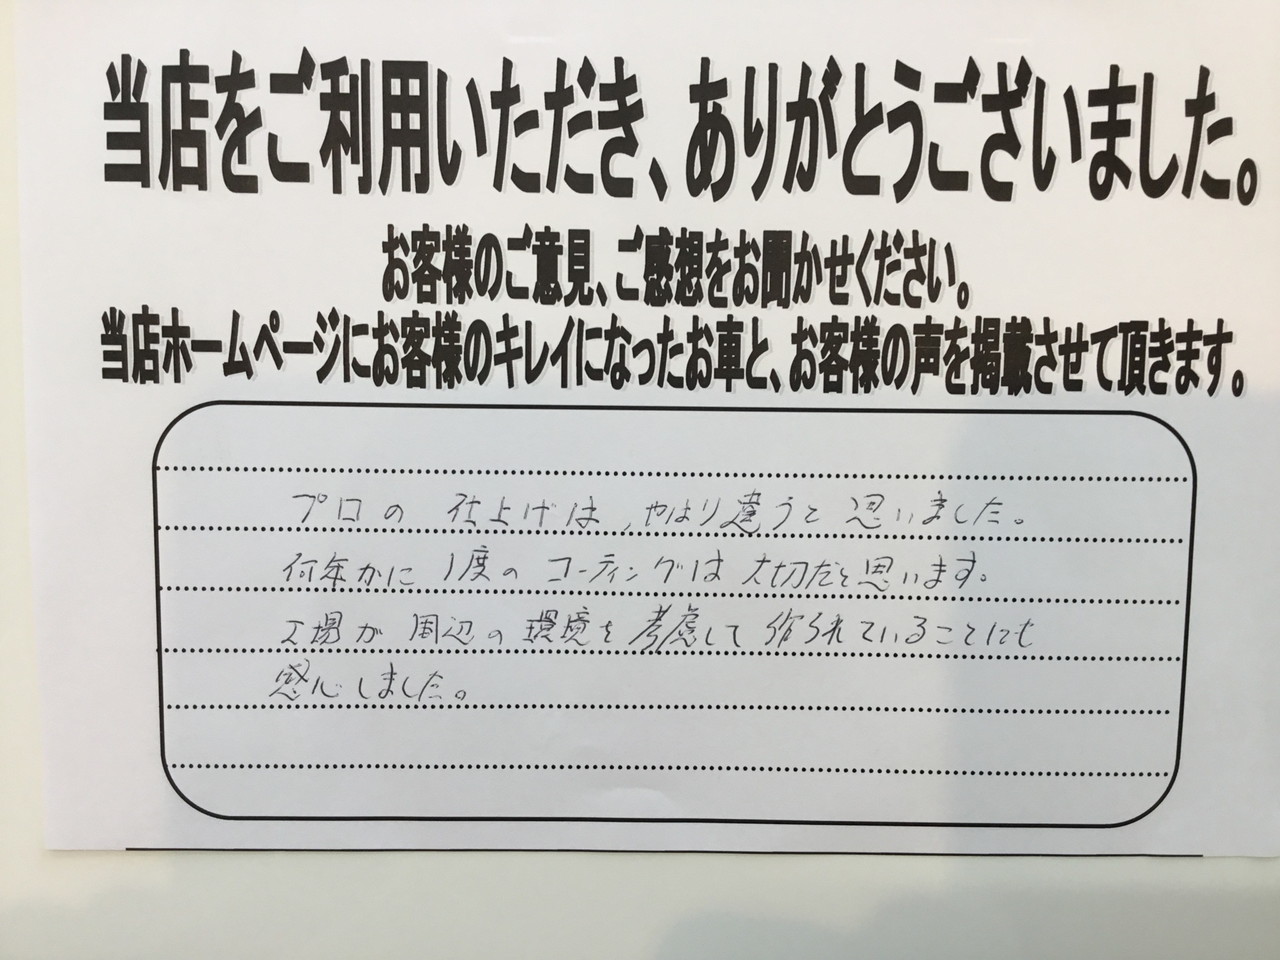 当店をご利用いただき、ありがとうございました。
お客様のご意見、ご感想をお聞かせください。
当店ホームページにお客様のキレイになったお車と、お客様の声を掲載させて頂きます。
プロの仕上げは、やはり違うと思いました。
何年かに1度のコーティングは大切だと思います。
工場が周辺の環境を考慮して作られていることにも
感心しました。